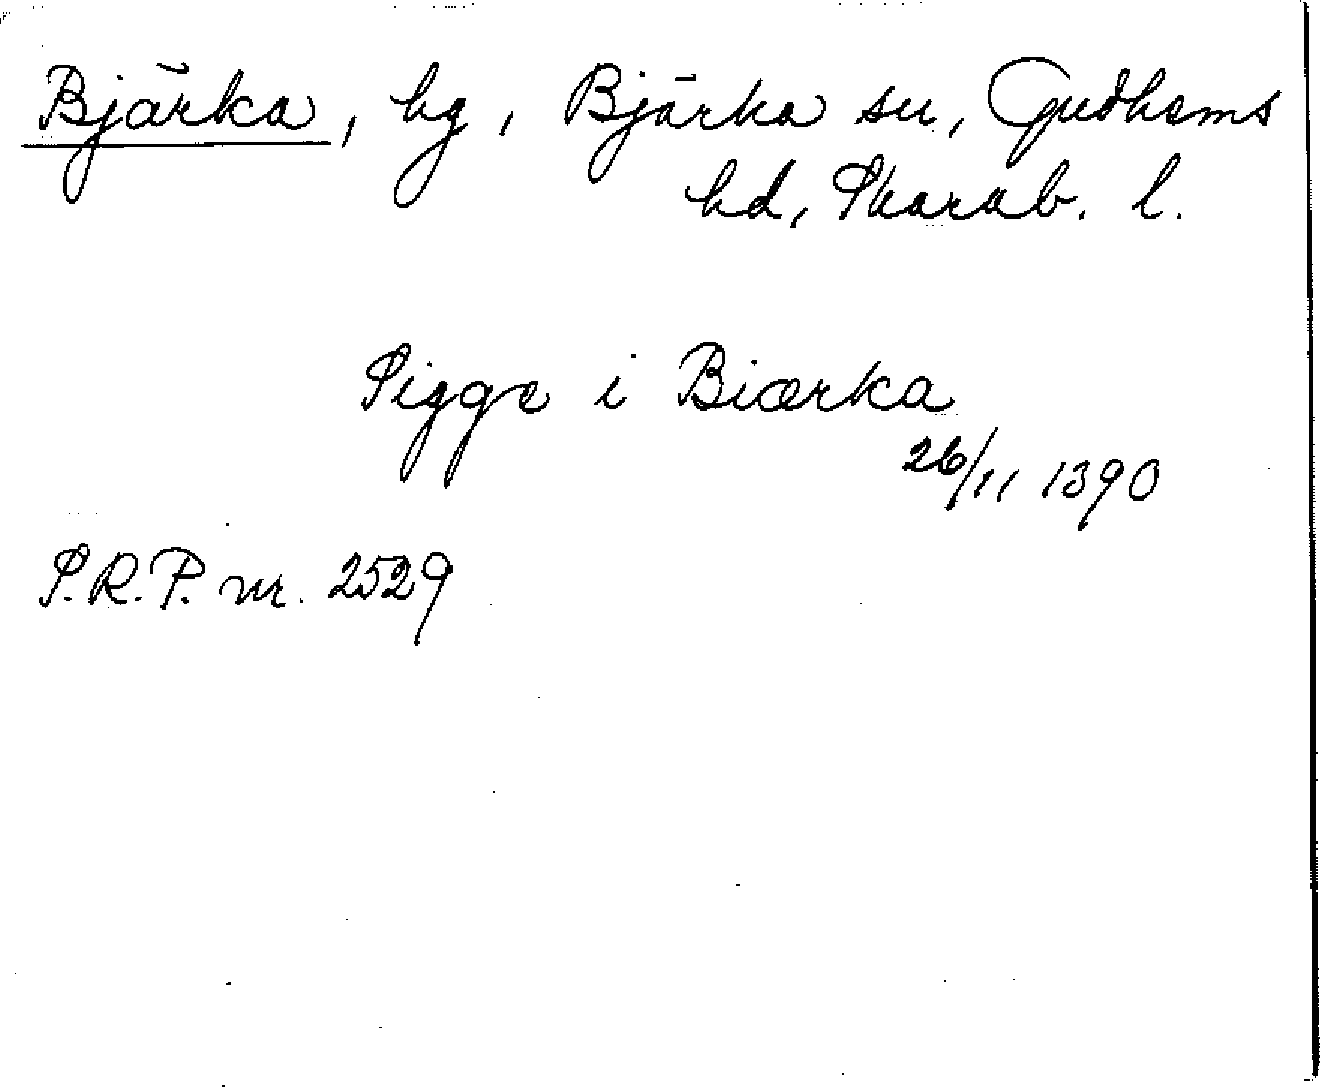 Bjärka, hg, Bjärka sn, Gudhems
hd, Skarab. l.
Sigge i Biærka
26/11 1390
S.R.P. nr. 2529